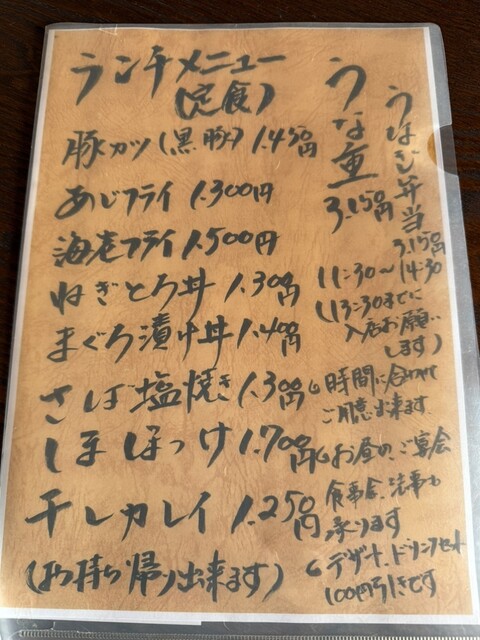 ランチメニュー
(定食)
豚カツ(黒豚) 1.450円
あじフライ 1.300円
海老フライ 1.500円
ねぎとろ丼 1.300円
まぐろ漬け丼 1.400円
さば塩焼き 1.300円
しまほっけ 1.700円
干しカレイ 1.250円
(お持ち帰り出来ます)
うな重
3.150円
うなぎ弁当
3.150円
11:30〜14:30
(13:30までに
入店お願い
します)
時間に合わせ
ご用意出来ます
お昼のご宴会
食事会、法事も
承ります
デザート、ドリンクセット
100円引きです